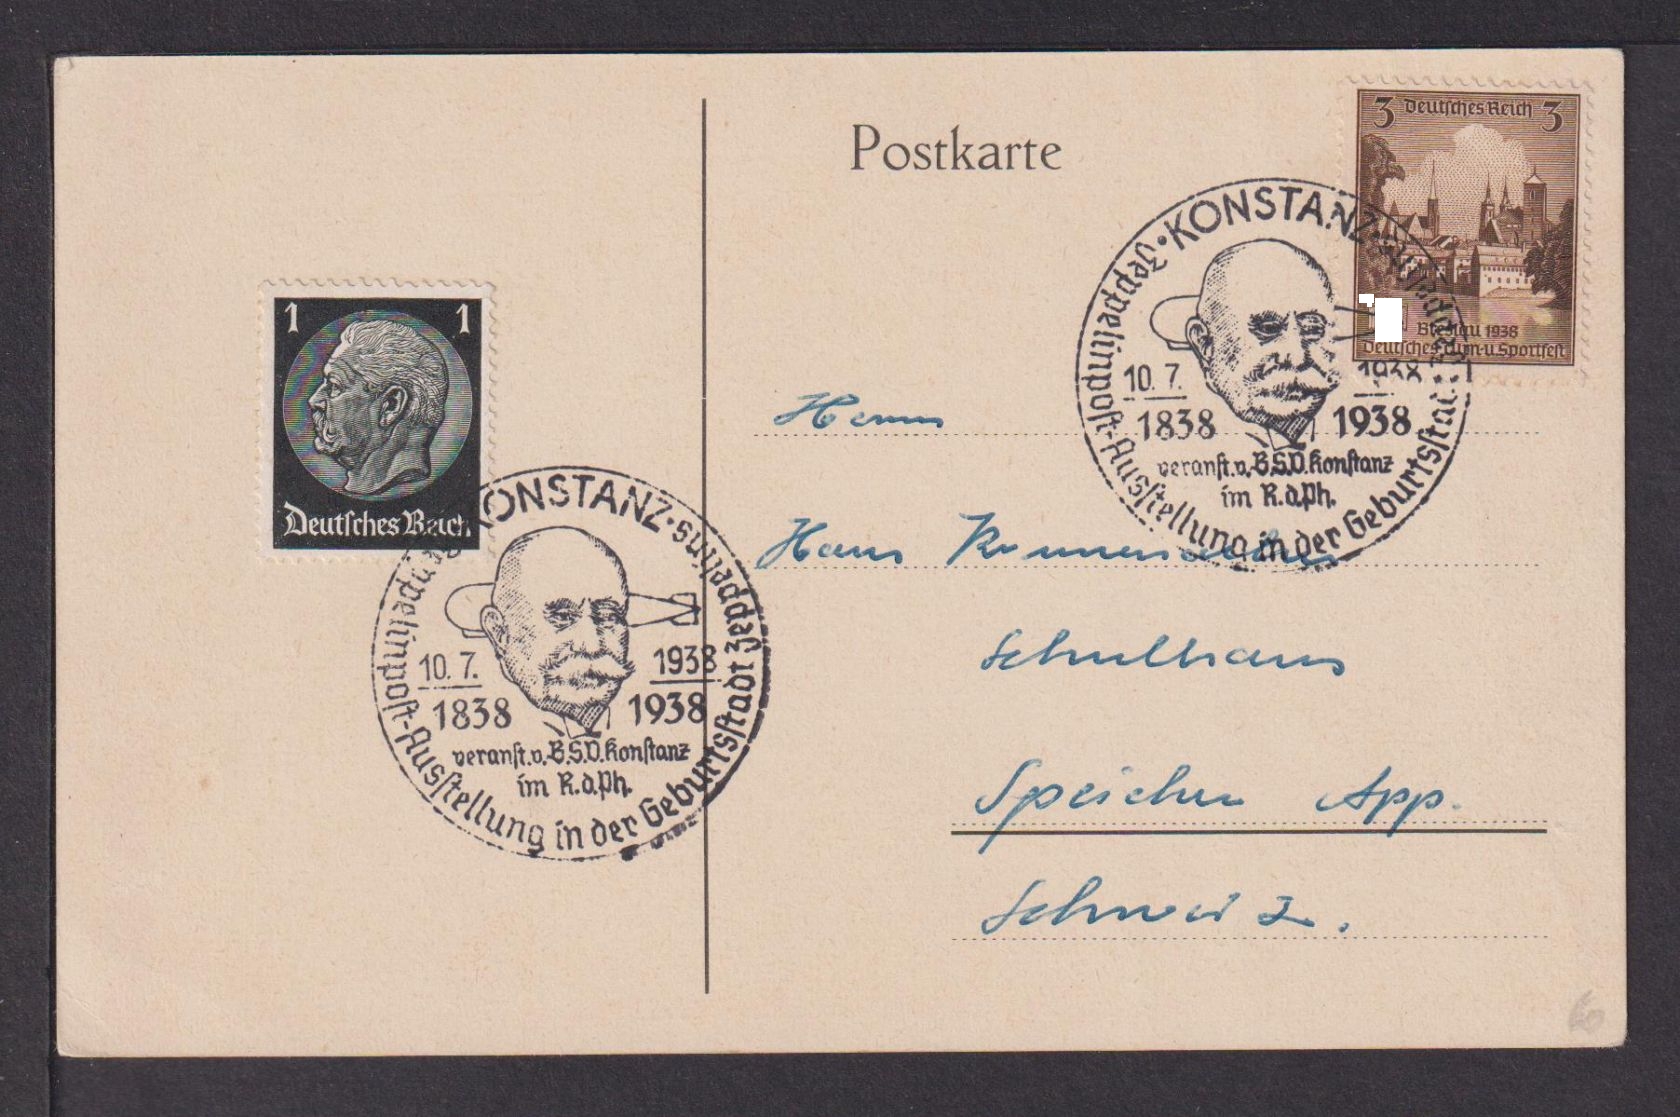 Postkarte
3 Deutsches Reich 3
Breslau 1938
Deutsches Turn-u.Sportfest
1 1
Deutsches Reich
KONSTANZ
Zeppelinpost-Ausstellung in der Geburtsstadt Zeppelins
10. 7. 1938
1838 1938
veranst. v. B.S.V. Konstanz
im R.d.Ph.
KONSTANZ
Zeppelinpost-Ausstellung in der Geburtsstadt Zeppelins
10. 7. 1938
1838 1938
veranst. v. B.S.V. Konstanz
im R.d.Ph.
Herrn
Hans
Schulhaus
Speicher App.
Schweiz.